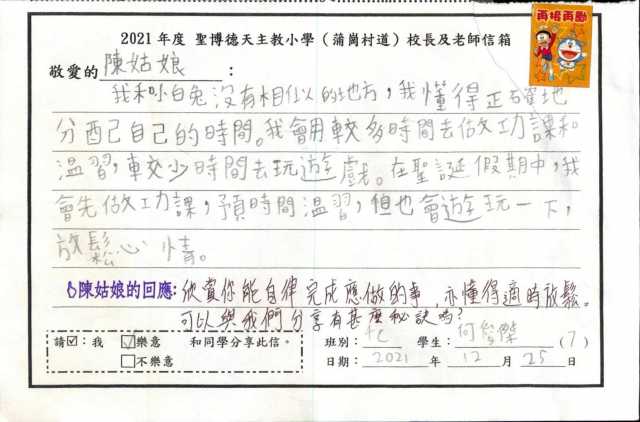 2021 年度 聖博德天主教小學（蒲崗村道）校長及老師信箱
再接再勵
敬愛的陳姑娘：
我和小白兔沒有相似的地方，我懂得正確地
分配自己的時間。我會用較多時間去做功課和
溫習，較少時間去玩遊戲。在聖誕假期中，我
會先做功課，預時間溫習，但也會遊玩一下，
放鬆心情。
陳姑娘的回應：欣賞你能自律完成應做的事，亦懂得適時放鬆。
可以與我們分享有甚麼秘訣嗎？
請☑：我 ☑樂意 和同學分享此信。 班別： 學生：何 傑 （7）
□不樂意 日期：2021 年 12 月 25 日